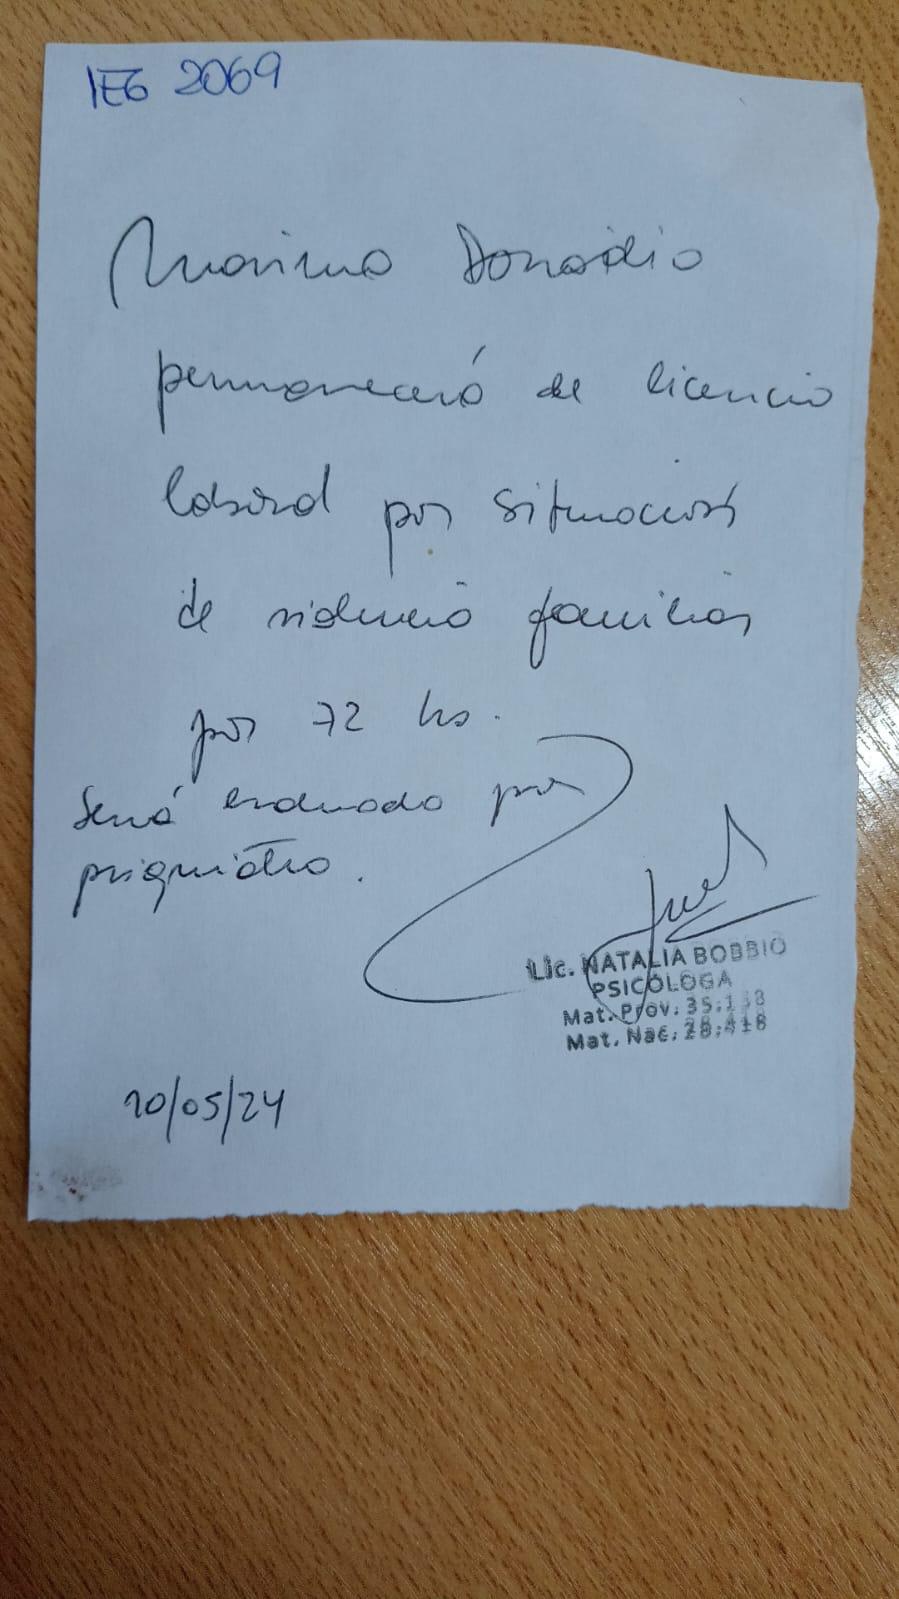 LEG 2069
Maximo Donadio
permanecerá de licencia
laboral por situación
de violencia familiar
por 72 hs.
Será evaluado por
psiquiatra.
Lic. NATALIA BOBBIO
PSICÓLOGA
Mat. Prov. 35.133
Mat. Nac. 28.418
20/05/24